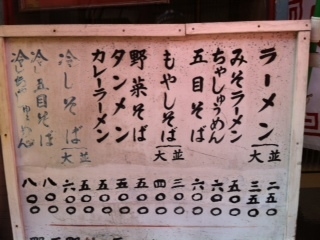 ラーメン 並 二五〇
大 三五〇
みそラーメン 五〇〇
ちゃしゅうめん 六〇〇
五目そば 六〇〇
もやしそば 並 三〇〇
大 四〇〇
野菜そば 五〇〇
タンメン 五〇〇
カレーラーメン 五〇〇
冷しそば 並 五〇〇
大 六〇〇
冷し五目そば 八〇〇
冷しちゃしゅうめん 八〇〇